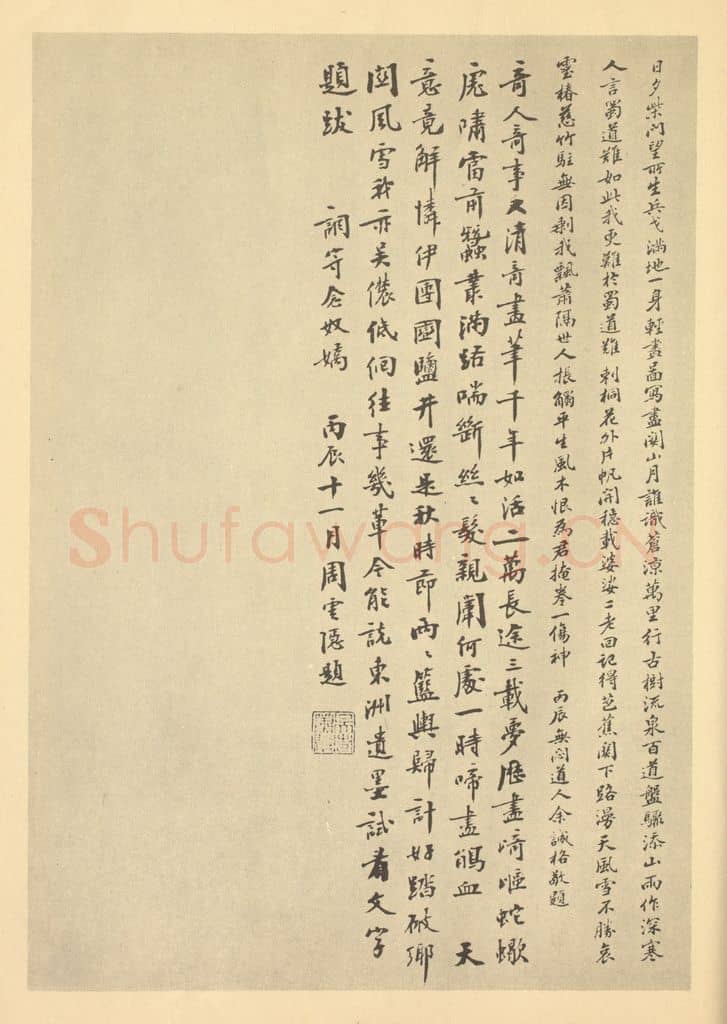 日夕柴門望所生兵戈滿地一身輕畫啚寫盡關山月誰識蒼涼萬里行古樹流泉百道盤驟添山雨作深寒
人言蜀道難如此我更難於蜀道難刺桐花外片帆開穩載婆娑二老回記得芭蕉關下路漫天風雪不勝哀
靈椿慈竹駐無因剩我飄蕭隔世人振觸平生風木恨為君掩卷一傷神 丙辰無悶道人余誠格敬題
奇人奇事又清奇畫筆千年如活二萬長途三載夢歷盡崎嶇蛇蠍
虎嘯雷前蠶叢滿路喘斷絲絲髮親闈何處一時啼盡鵑血 天
意竟解憐伊團圞鹽井還是秋時節兩兩籃輿歸計好踏破鄉
關風雪我亦吳儂低佪往事幾輩今能說東洲遺墨試看文字
題跋 調寄念奴嬌 丙辰十一月周雲隱題
Shufawang.CN